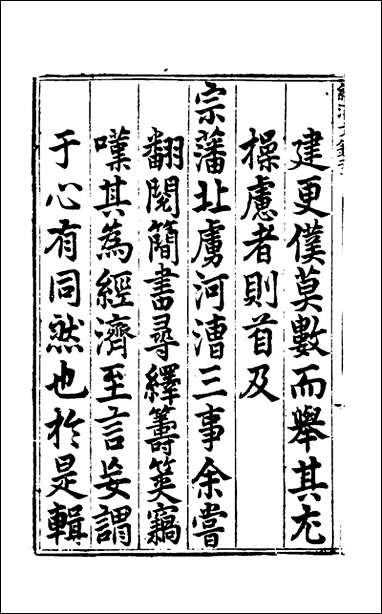 建更僕莫數而舉其尤
操慮者則首及
宗藩北虜河漕三事余嘗
翻閱簡書尋繹籌筴竊
嘆其為經濟至言妄謂
于心有同然也於是輯